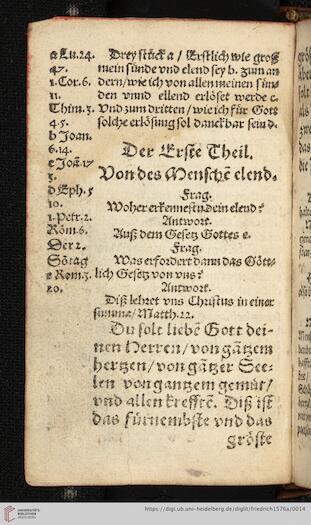 a Lu.24.
47.
1.Cor.6.
11.
Thim.3.
4.5.
b Joan.
6.14.
c Joã.17
3.
d Eph.5
10.
1.Petr.2.
Röm.6.
Der 2.
Sõtag
e Rom.3.
20.
Drey stück a / Erstlich wie groß
mein sünde vnd elend sey b. zum an
dern/wie ich von allen meinen sün
den vnnd ellend erlöset werde c.
Vnd zum dritten/wie ich für Gott
solche erlösung sol danckbar sein d.
Der Erste Theil.
Von des Menschẽ elend.
Frag.
Woher erkennestu dein elend?
Antwort.
Auß dem Gesetz Gottes e.
Frag.
Was erfordert dann das Gött-
lich Gesetz von vns?
Antwort.
Diß lehret vns Christus in einer
summa/Matth.22.
Du solt liebẽ Gott dei-
nen Herren/von gãtzem
hertzen/von gãtzer See-
len von gantzem gemüt/
vnd allen krefftẽ. Diß ist
das fürnembste vnd das
gröste
UNIVERSITÄTS-
BIBLIOTHEK
HEIDELBERG
https://digi.ub.uni-heidelberg.de/diglit/friedrich1576a/0014